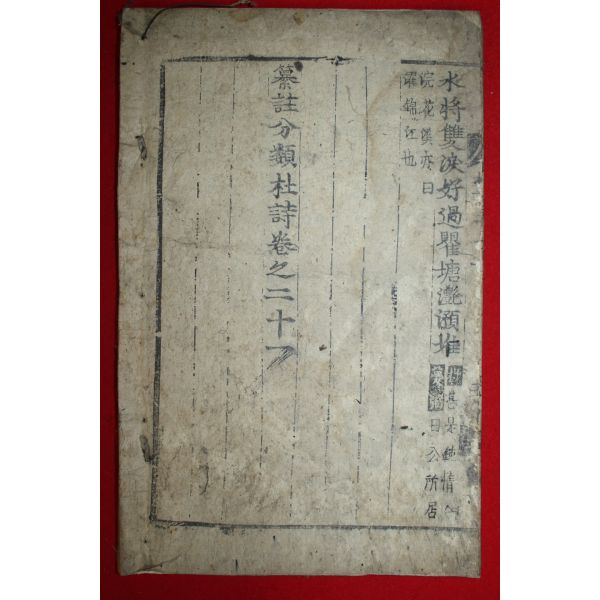 水將雙淚好過瞿塘灩澦堆
批甚是情
夢弼曰公所居
浣花溪亦曰
濯錦江也
纂註分類杜詩卷之二十一